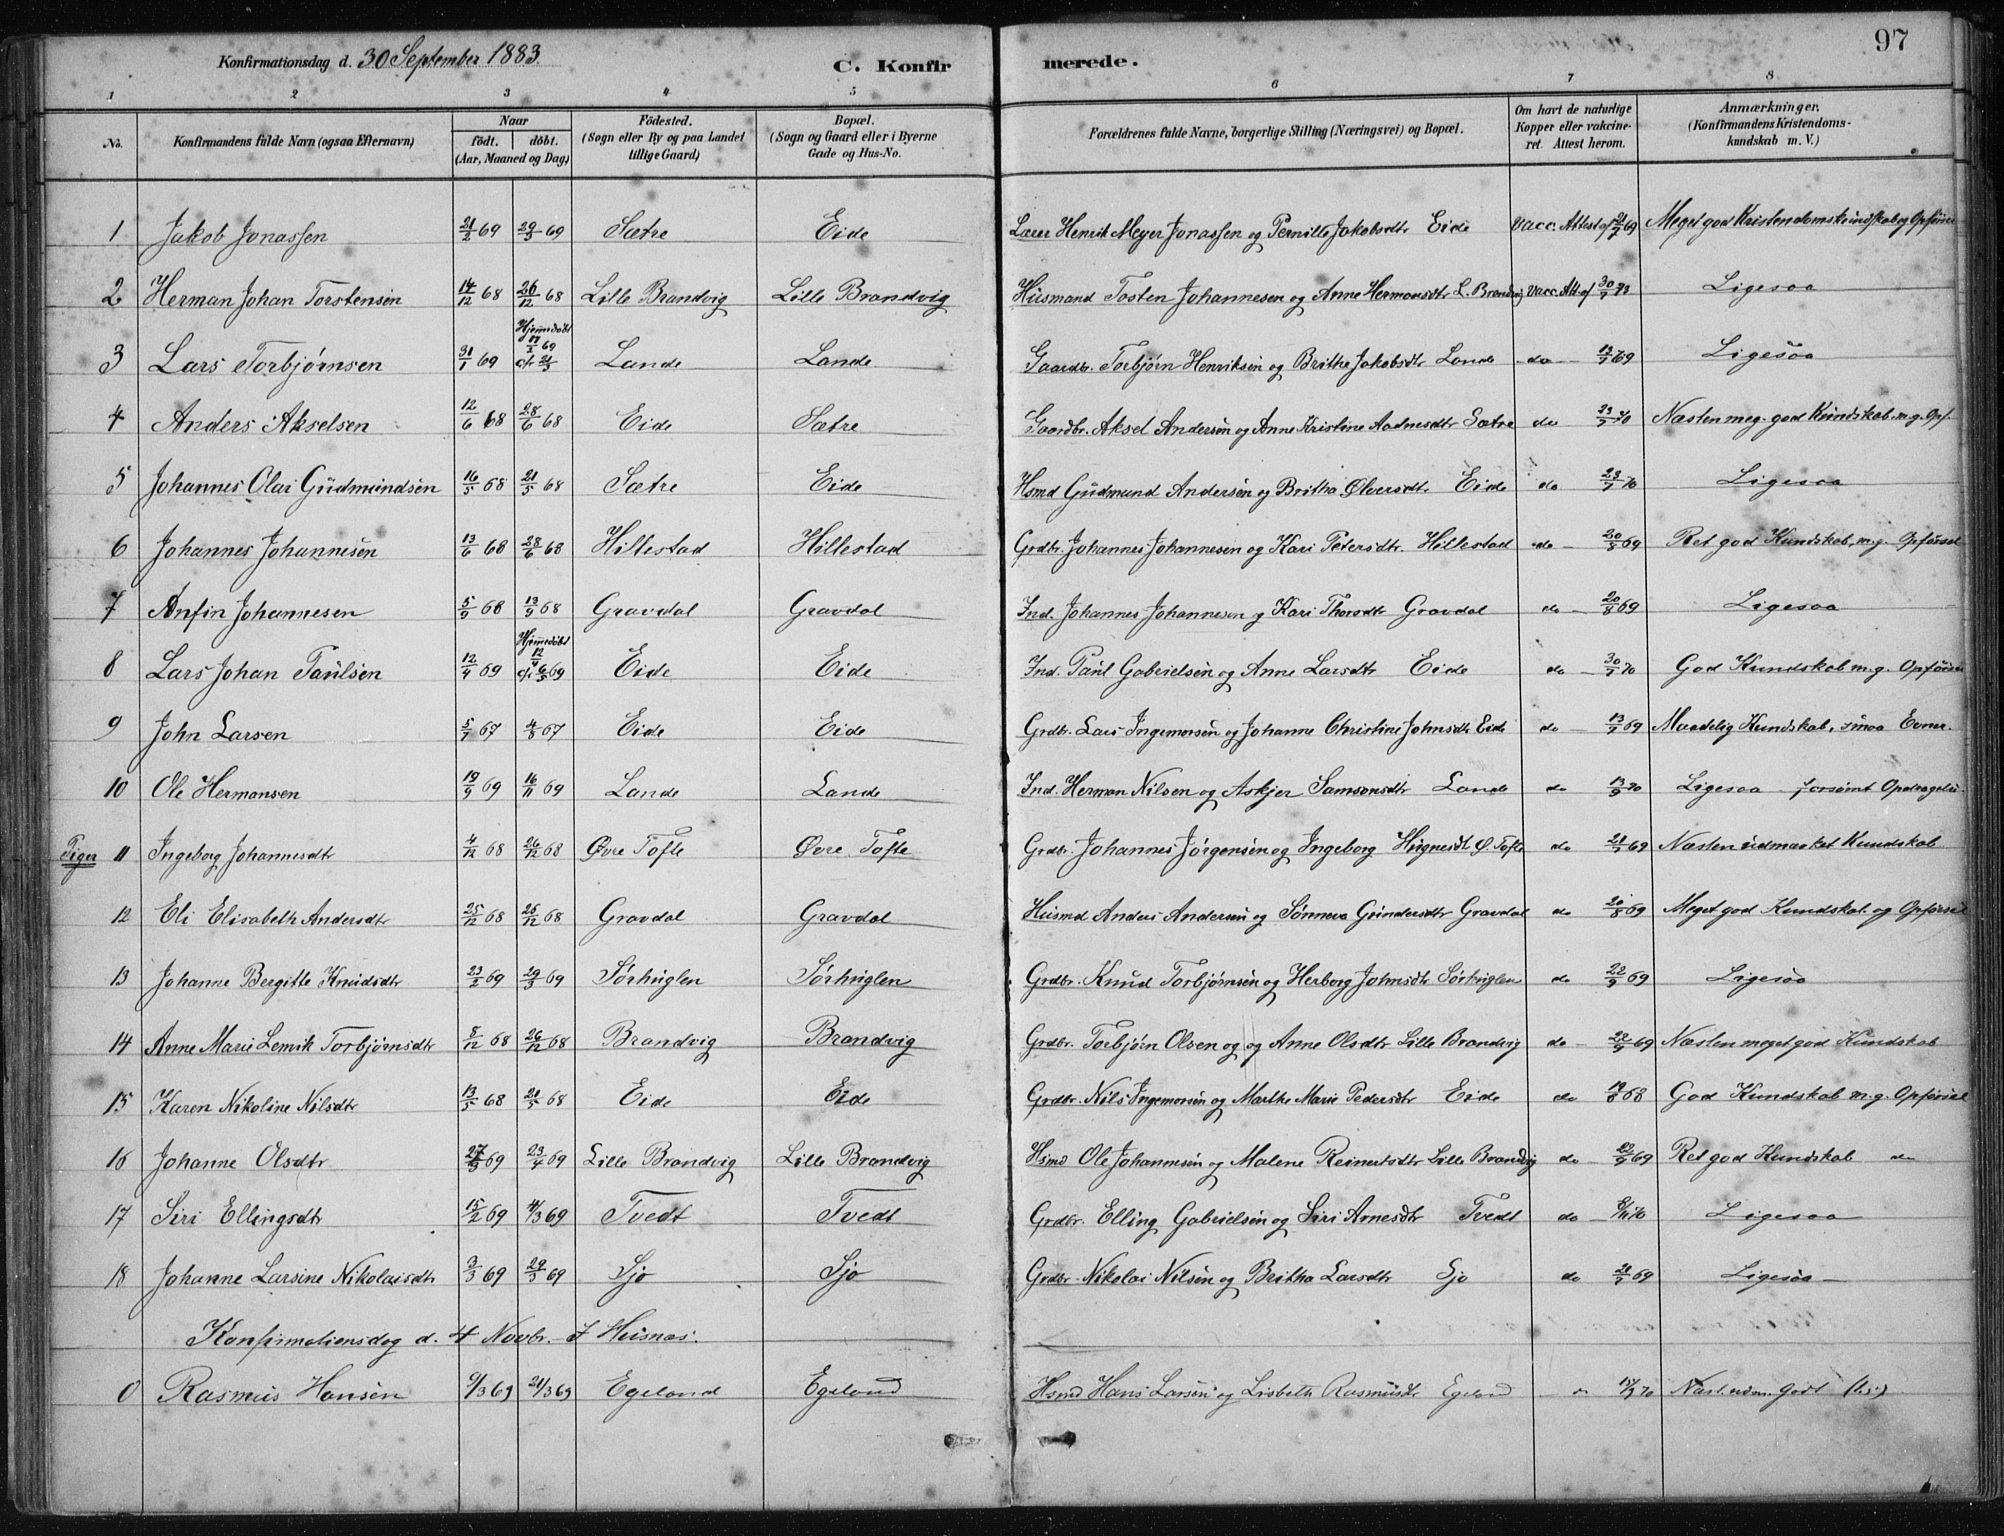 97
Konfirmationsdag d. 30 September 1883.
C. Konfirmerede.
1 2 3 4 5 6 7 8
No. Konfirmandens fulde Navn (ogsaa Efternavn) Naar født. døbt. (Aar, Maaned og Dag) Födested. (Sogn eller By og paa Landet tillige Gaard) Bopæl. (Sogn og Gaard eller i Byerne Gade og Hus-No. Forældrenes fulde Navne, borgerlige Stilling (Næringsvei) og Bopæl. Om havt de naturlige Kopper eller vakcineret. Attest herom. Anmærkninger. (Konfirmandens Kristendomskundskab m. V.)
1 Jakob Jonassen 21/2 69 29/3 69 Sætre Eide Lærer Henrik Meyer Jonassen og Pernille Jakobsdtr Eide Vacc. Attest af 69 Meget god Kristendomskundskab og Opførsel
2 Herman Johan Torstensen 14/12 68 26/12 68 Lille Brandvig Lille Brandvig Husmand Tosten Johannesen og Anne Hermansdtr L. Brandvig Vacc. Att. af 30/7 Ligesaa
3 Lars Torbjørnsen 31/1 69 Hjemmedøbt 69 Lande Lande Gaardbr. Torbjørn Henriksen og Brithe Jakobsdtr Lande do 13/7 69 Ligesaa
4 Anders Akselsen 12/6 68 28/6 68 Eide Sætre Gaardbr. Aksel Andersen og Anne Kristine Aadnesdtr Sætre do 23/7 70 Næsten meg. god Kundskab. m.g. Opf.
5 Johannes Olai Gudmundsen 16/5 68 21/5 68 Sætre Eide Hsmd Gudmund Andersen og Britha Ølversdtr Eide do 23/7 70 Ligesaa
6 Johannes Johannesen 13/6 68 28/6 68 Hillestad Hillestad Grdbr. Johannes Johannesen og Kari Petersdtr. Hillestad do 20/8 69 Ret god Kundskab, m.g. Opførsel
7 Anfin Johannesen 5/9 68 13/9 68 Gravdal Gravdal Ind. Johannes Johannesen og Kari Thorsdtr Gravdal do 20/8 69 Ligesaa
8 Lars Johan Paulsen 12/4 69 Hjemmedøbt 12/4 69 Eide Eide Ind. Paul Gabrielsen og Anne Larsdtr Eide do 30/7 70 God Kundskab m.g. Opførsel
9 John Larsen 5/7 67 4/8 67 Eide Eide Grdbr. Lars Ingemorsen og Johanne Christine Johnsdtr Eide do 13/7 69 Maadelig Kundskab, smaa Evner.
10 Ole Hermansen 19/9 69 16/11 69 Lande Lande Ind. Herman Nilsen og Askjer Samsonsdtr Lande do 13/9 70 Ligesaa forsømt Opdragelse
Piger 11 Ingeborg Johannesdtr 4/12 68 26/12 68 Øvre Tofte Øvre Tofte Grdbr. Johannes Jørgensen og Ingeborg Ø. Tofte do 21/7 69 Næsten udmærket Kundskab
12 Eli Elisabeth Andersdtr 25/12 68 26/12 68 Gravdal Gravdal Husmd Anders Andersen og Sønneva Gundersdtr Gravdal do 20/8 69 Meget god Kundskab og Opførsel
13 Johanne Bergitte Knudsdtr 23/2 69 29/3 69 Sørhuglen Sørhuglen Grdbr. Knud Torbjørnsen og Herborg Johnsdtr Sørhuglen do 22/9 69 Ligesaa
14 Anne Marie Lemik Torbjørnsdtr 8/12 68 26/12 68 Brandvig Brandvig Grdbr. Torbjørn Olsen og og Anne Olsdtr Lille Brandvig do 22/9 69 Næsten meget god Kundskab
15 Karen Nikoline Nilsdtr 13/5 68 21/5 68 Eide Eide Grdbr. Nils Ingemorsen og Marthe Marie Pedersdtr Eide do 68 God Kundskab m.g. Opførsel
16 Johanne Olsdtr 27/3 69 23/4 69 Lille Brandvig Lille Brandvig Hsmd Ole Johannesen og Malene Reinertsdtr Lille Brandvig do 22/9 69 Ret god Kundskab do
17 Siri Ellingsdtr 15/2 69 14/3 69 Tvedt Tvedt Grdbr. Elling Gabrielsen og Siri Arnesdtr Tvedt do Ligesaa
18 Johanne Larsine Nikolaisdtr 3/3 69 29/3 69 Sjo Sjo Grdbr. Nikolai Nilsen og Britha Larsdtr Sjo do 21/7 69 Ligesaa
Konfirmationsdag d. 4 Novbr. I Husnæs.
0 Rasmus Hansen 9/3 69 21/3 69 Egeland Egeland Hsmd Hans Larsen og Lisbeth Rasmusdtr Egeland Næst. udm. godt